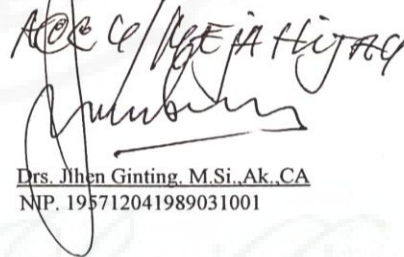 ACC U/ MEJA HIJAU
Drs. Jihen Ginting, M.Si.,Ak.,CA
NIP. 195712041989031001